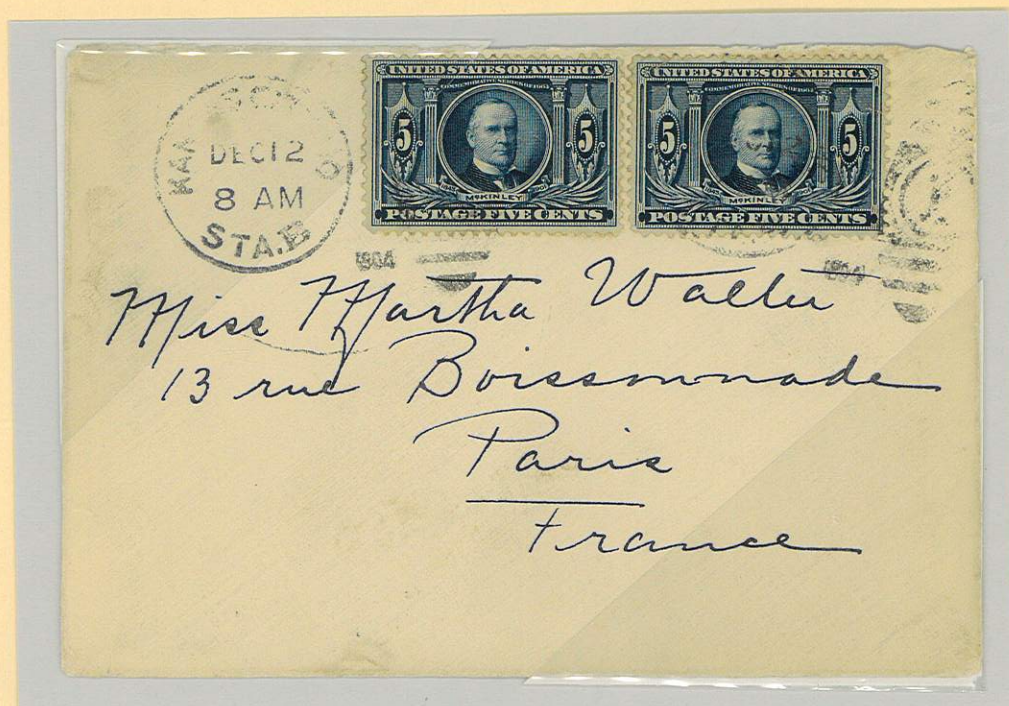 DEC 12
8 AM
STA.B
1904
UNITED STATES OF AMERICA
COMMEMORATIVE SERIES OF 1904
5 5
McKINLEY
POSTAGE FIVE CENTS
UNITED STATES OF AMERICA
COMMEMORATIVE SERIES OF 1904
5 5
McKINLEY
POSTAGE FIVE CENTS
1904
Miss Martha Walter
13 rue Boissonnade
Paris
France